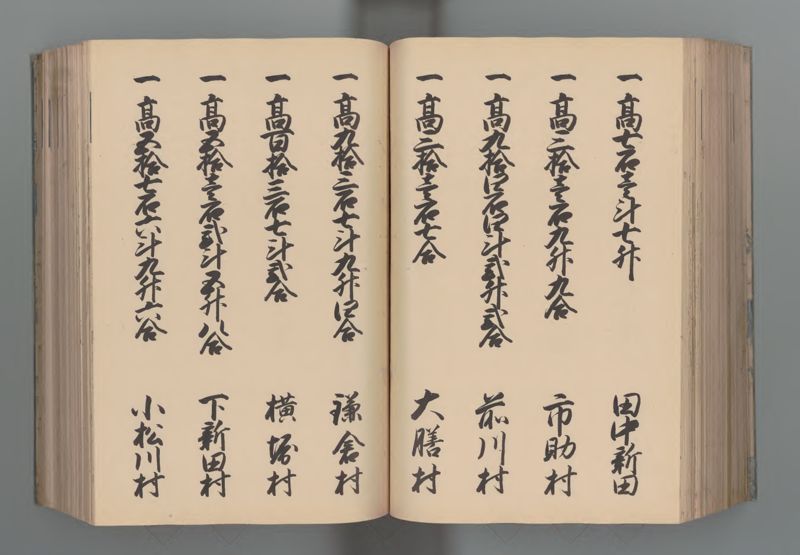 一 高七石壱斗七升 田中新田
一 高二拾壱石九升九合 市助村
一 高九拾四石四斗弐升弐合 前川村
一 高二拾壱石七合 大膳村
一 高九拾二石七斗九升四合 鎌倉村
一 高百拾三石七斗弐合 横堀村
一 高五拾壱石弐斗五升八合 下新田村
一 高五拾七石六斗九升六合 小松川村